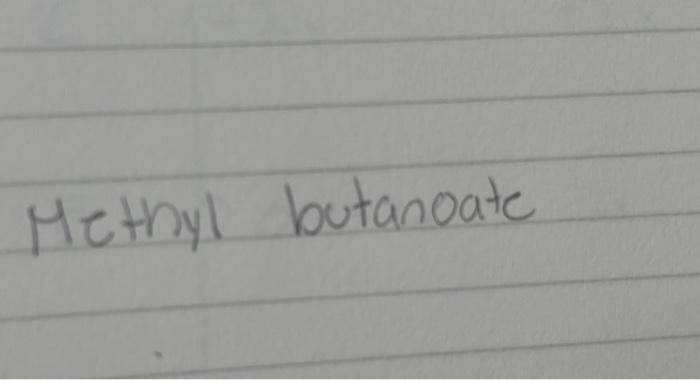 Methyl butanoate